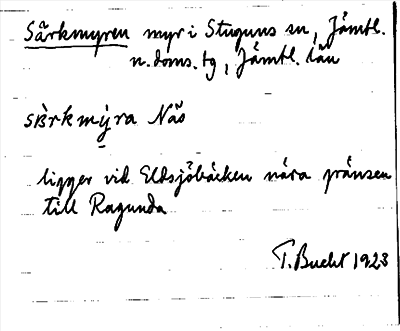 Särkmyren myr i Stuguns sn, Jämtl.
n. doms. tg, Jämtl. län
särkmy̆ra Näs
ligger vid Eldsjöbäcken nära gränsen
till Ragunda
T. Bucht 1923